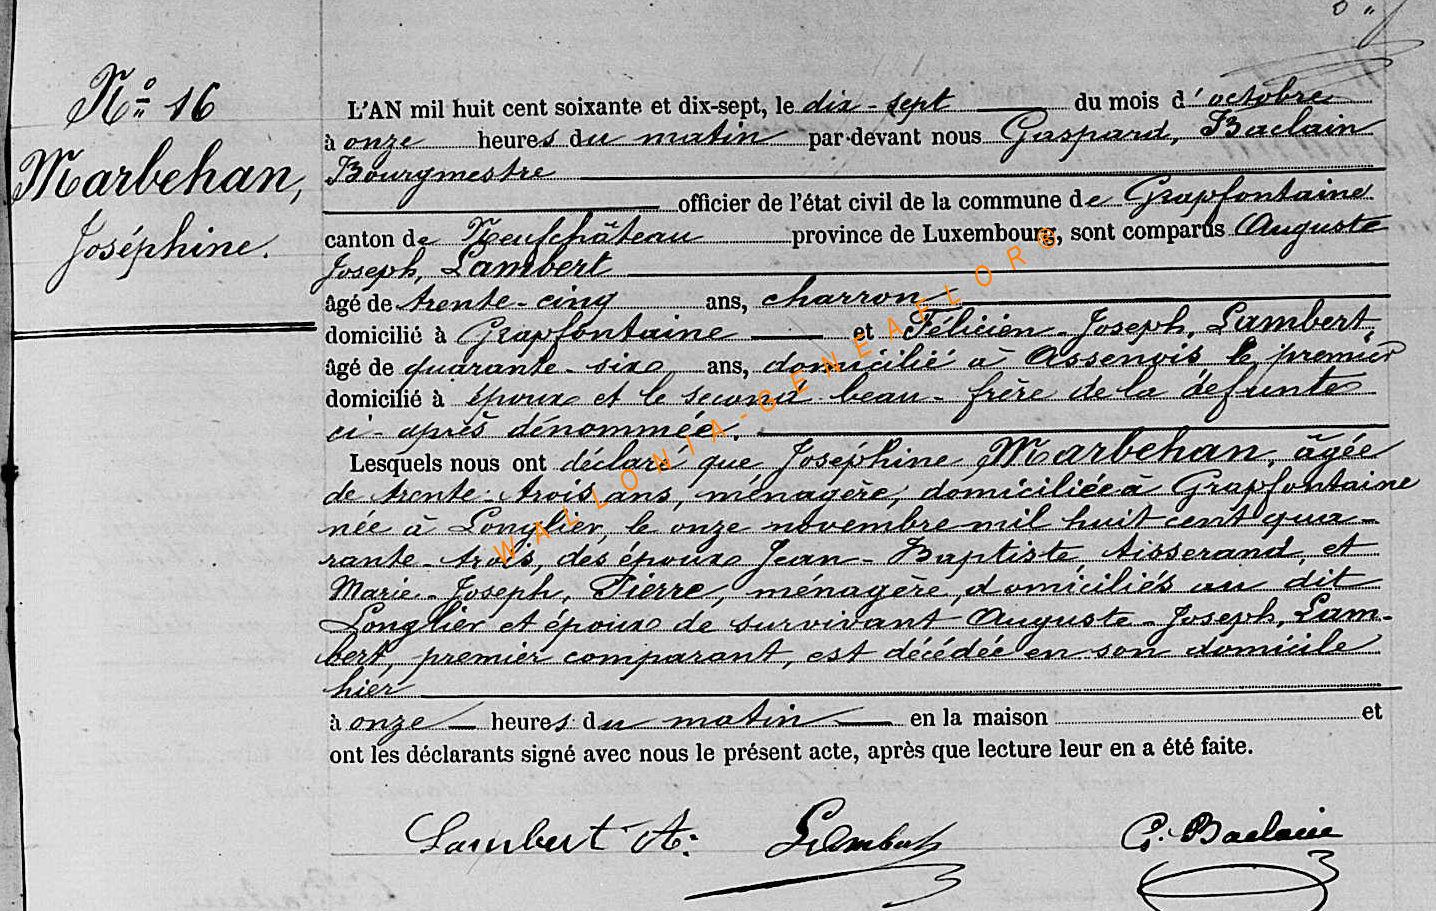 Nº 16
Marbehan,
Joséphine.
L'AN mil huit cent soixante et dix-sept, le dix-sept du mois d'octobre
à onze heures du matin par-devant nous Gaspard, Baclain
Bourgmestre
officier de l'état civil de la commune de Grapfontaine
canton de Neufchâteau province de Luxembourg, sont comparus Auguste
Joseph, Lambert
âgé de trente-cinq ans, charron
domicilié à Grapfontaine et Félicien-Joseph, Lambert,
âgé de quarante-six ans, domicilié à Assenois le premier
domicilié à époux et le second beau-frère de la défunte
ci-après dénommée.
Lesquels nous ont déclaré que Joséphine Marbehan, âgée
de trente-trois ans, ménagère, domiciliée à Grapfontaine
née à Longlier, le onze novembre mil huit cent qua-
rante-trois, des époux Jean-Baptiste, tisserand, et
Marie-Joseph, Pierre, ménagère, domiciliés au dit
Longlier et époux de survivant Auguste-Joseph, Lam-
bert, premier comparant, est décédée en son domicile
hier
à onze heures du matin en la maison et
ont les déclarants signé avec nous le présent acte, après que lecture leur en a été faite.
Lambert A: Lambert G. Baclain
WALLONIA-GENEAFLOR©